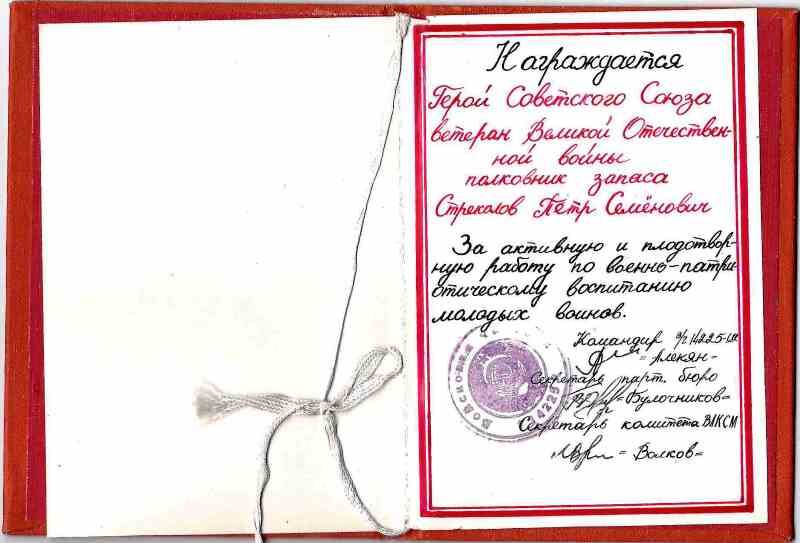 Награждается
Герой Советского Союза
ветеран Великой Отечествен-
ной войны
полковник запаса
Стреколов Пётр Семёнович
За активную и плодотвор-
ную работу по военно-патри-
отическому воспитанию
молодых воинов.
Командир в/ч 14225-
=лекян-
Секретарь парт. бюро
=Булочников=
Секретарь комитета ВЛКСМ
= Волков=
Войсковая
14225